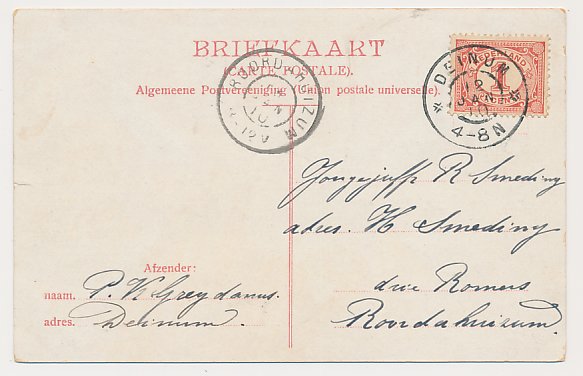 BRIEFKAART
(CARTE POSTALE).
Algemeene Postvereeniging (Union postale universelle).
NEDERLAND
1
CENT
DEINUM
12
JAN
10
4-8N
ROORDAHUIZUM
JAN
10
8-12V
Jongejuffr R Smeding
adres. H Smeding
drie Romers
Roordahuizum.
Afzender:
naam. P. K Greydanus.
adres. Deinum.